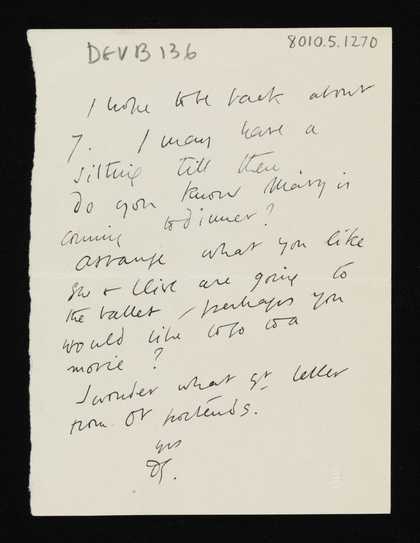 DEVB 136
8010.5.1270
I hope to be back about
7. I may have a
sitting till then
Do you know Mary is
coming to dinner?
Arrange what you like
She & Clive are going to
the ballet / perhaps you
would like to go to a
movie?
I wonder what yr letter
from Ot portends.
yrs